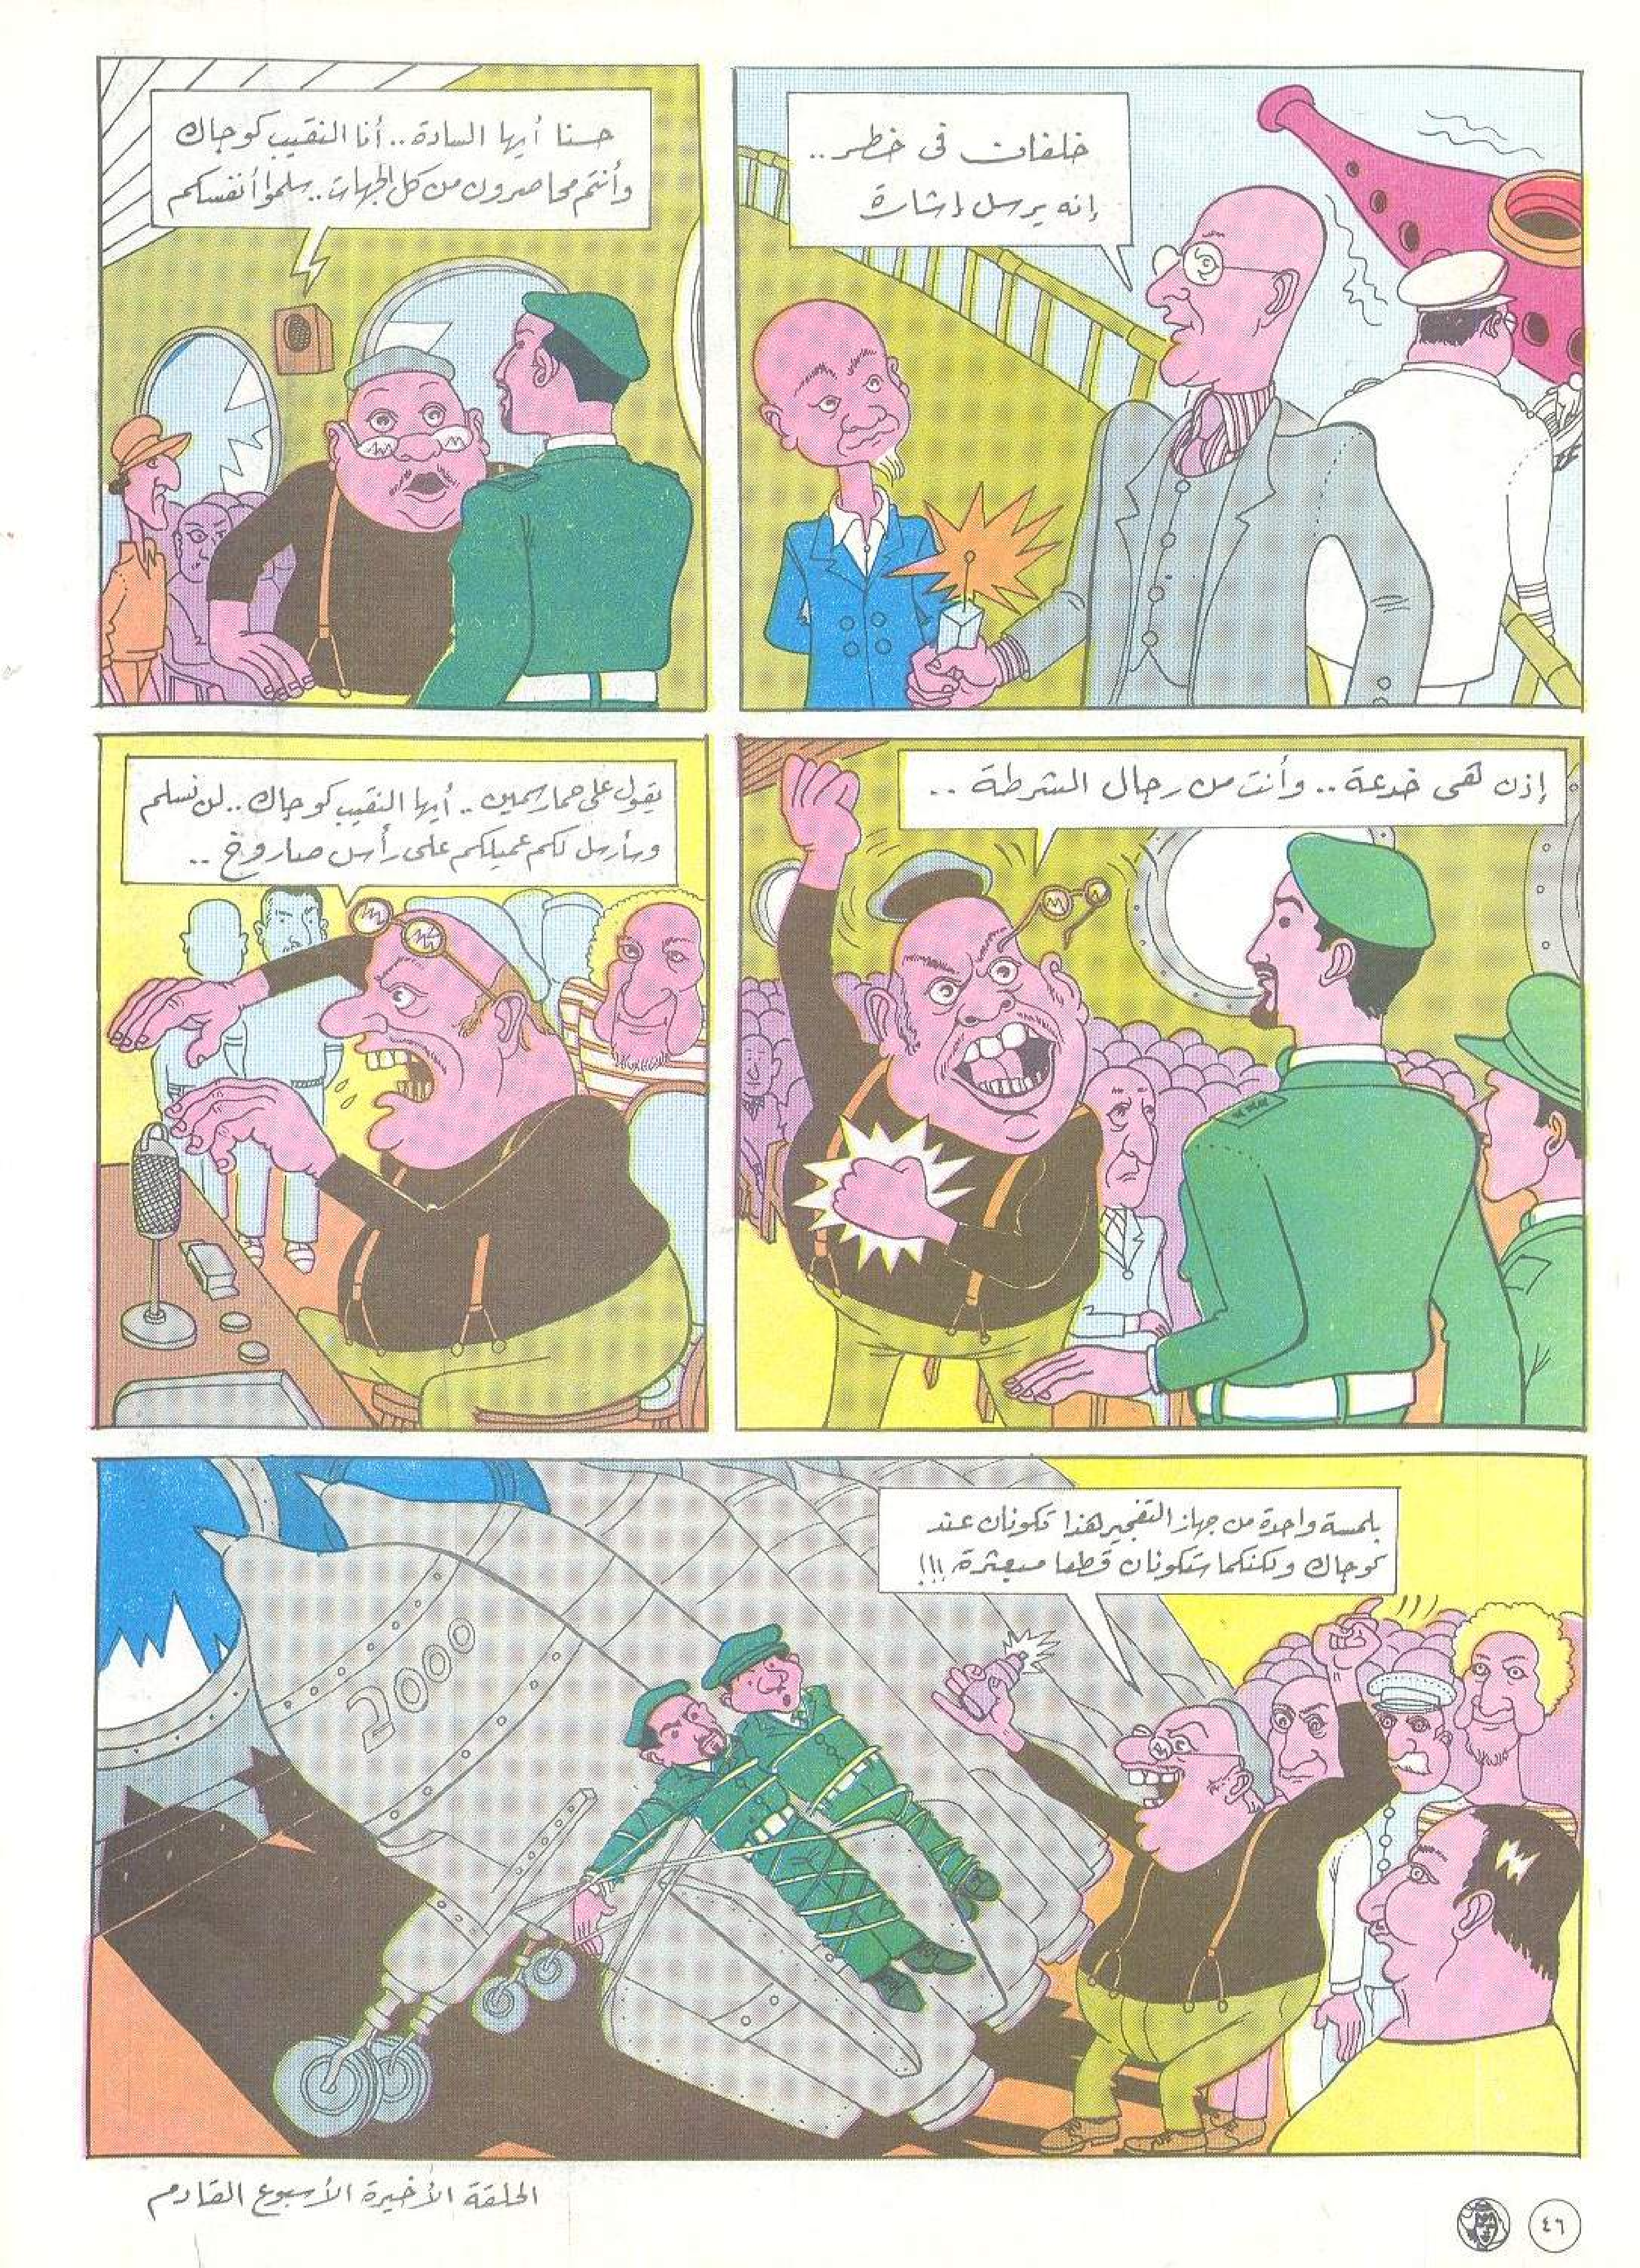 خلفان في خطر..
إنه يرسل إشارة
حسنا أيها السادة.. أنا النقيب كوجاك
وأنتم محاصرون من كل الجهات.. سلموا أنفسكم
إذن هى خدعة.. وأنت من رجال الشرطة ..
يقول على حمار سمين .. أيها النقيب كوجاك.. لن نسلم
وسأرسل لكم عميلكم على رأس صاروخ ..
بلمسة واحدة من جهاز التفجير هذا تكونان عند
كوجاك ولكنكما ستكونان قطعا مبعثرة !!!
2000
الحلقة الأخيرة الأسبوع القادم
٤٦